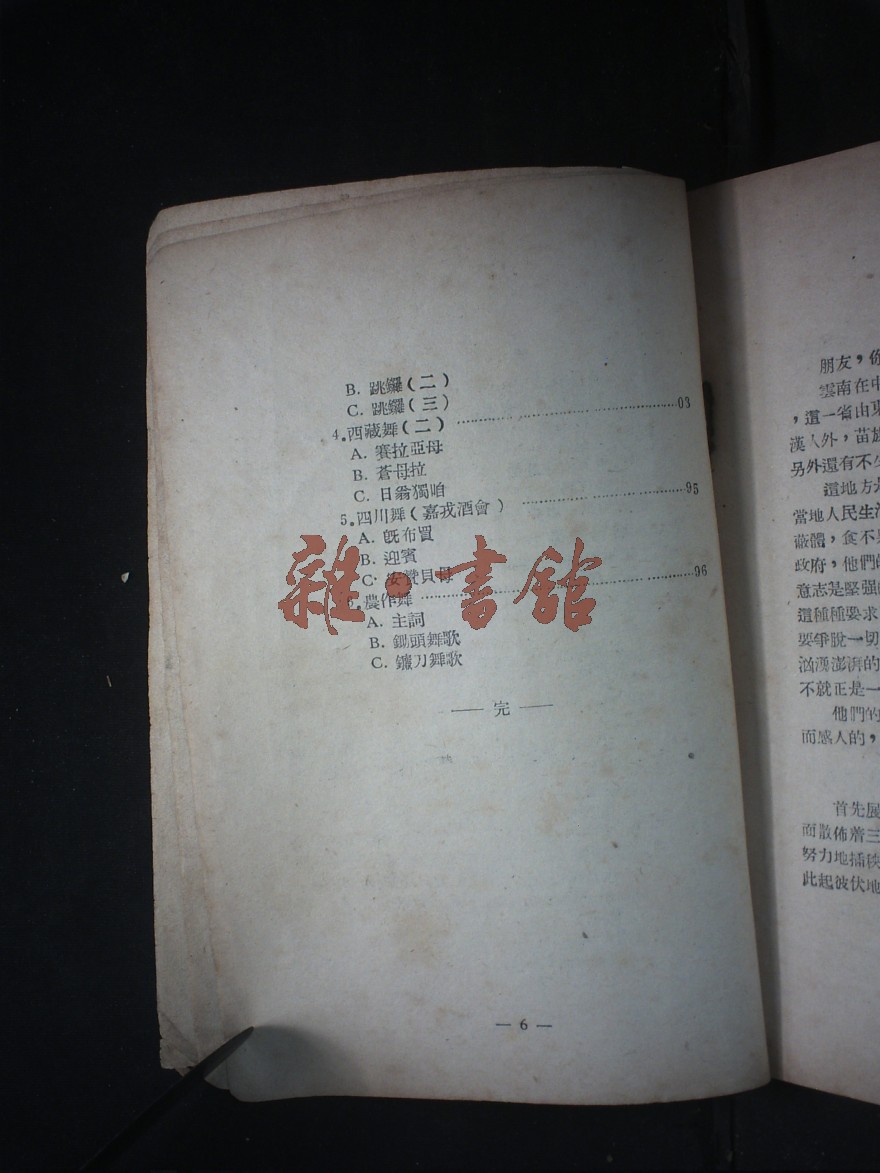 B. 跳鑼(二)
C. 跳鑼(三)
4.西藏舞(二) ……………………03
A. 賽拉亞母
B. 蒼母拉
C. 日翁獨咱
5.四川舞(嘉戎酒會) ……………………95
A. 旣布買
B. 迎賓
C. 安贊貝母
6.農作舞 ……………………96
A. 主詞
B. 鋤頭舞歌
C. 鐮刀舞歌
—— 完 ——
— 6 —
雜·書館
朋友,你
雲南在中
,這一省由東
漢人外,苗族
另外還有不
這地方
當地人民生活
蔽體,食不
政府,他們的
意志是堅强
這種種要求
要爭脫一切
洶湧澎湃的
不就正是一
他們的
而感人的,
首先展
而散佈着三
努力地插秧
此起彼伏地